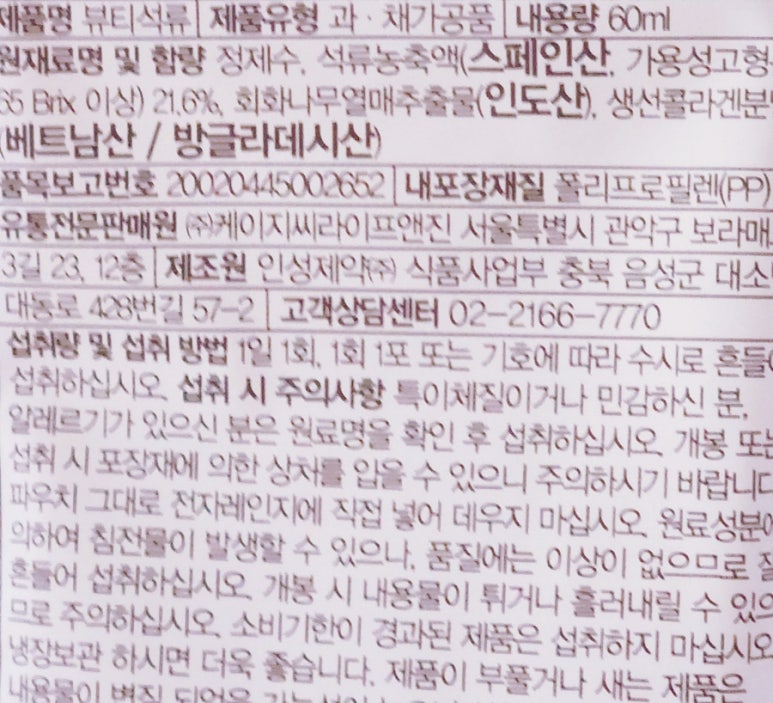 제품명 뷰티석류 제품유형 과·채가공품 내용량 60ml
원재료명 및 함량 정제수, 석류농축액(스페인산, 가용성고형
65 Brix 이상) 21.6%, 회화나무열매추출물(인도산), 생선콜라겐분
(베트남산 / 방글라데시산)
품목보고번호 20020445002652 내포장재질 폴리프로필렌(PP)
유통전문판매원 ㈜케이지씨라이프앤진 서울특별시 관악구 보라매
3길 23, 12층 제조원 인성제약㈜ 식품사업부 충북 음성군 대소
대동로 428번길 57-2 고객상담센터 02-2166-7770
섭취량 및 섭취 방법 1일 1회, 1회 1포 또는 기호에 따라 수시로 흔들어
섭취하십시오. 섭취 시 주의사항 특이체질이거나 민감하신 분,
알레르기가 있으신 분은 원료명을 확인 후 섭취하십시오. 개봉 또는
섭취 시 포장재에 의한 상처를 입을 수 있으니 주의하시기 바랍니다
파우치 그대로 전자레인지에 직접 넣어 데우지 마십시오. 원료성분에
의하여 침전물이 발생할 수 있으나, 품질에는 이상이 없으므로 잘
흔들어 섭취하십시오. 개봉 시 내용물이 튀거나 흘러내릴 수 있으
므로 주의하십시오. 소비기한이 경과된 제품은 섭취하지 마십시오
냉장보관 하시면 더욱 좋습니다. 제품이 부풀거나 새는 제품은
내용물이 변질